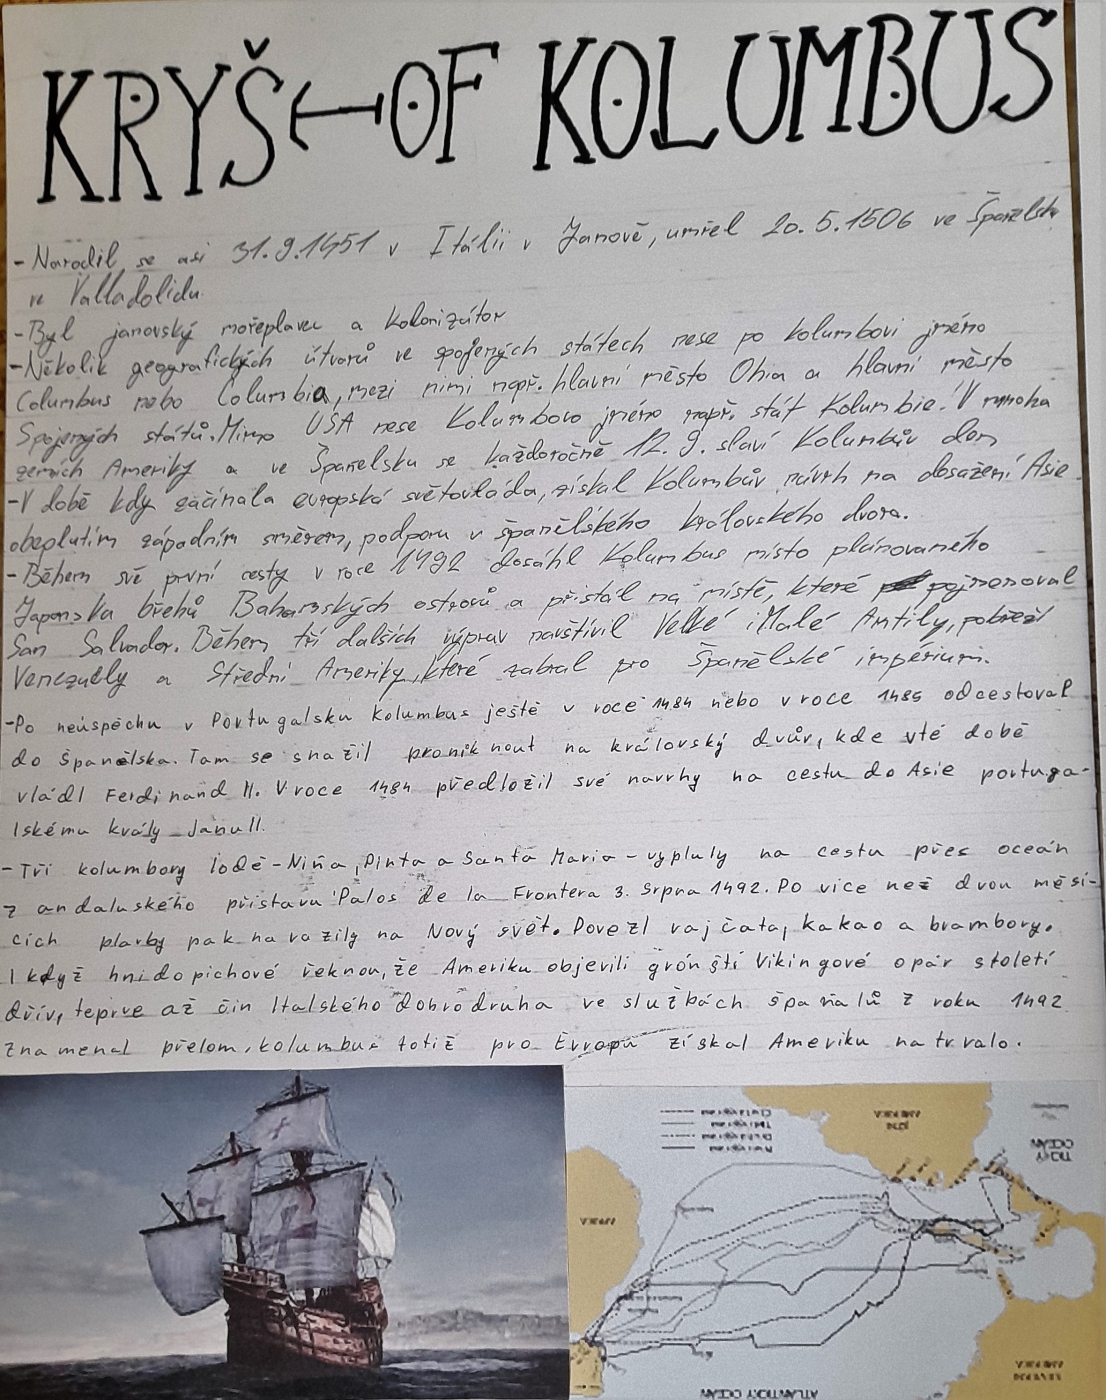 KRYŠTOF KOLUMBUS
- Narodil se asi 31.9.1451 v Itálii v Janově, umřel 20.5.1506 ve Španělsku
ve Valladolidu
- Byl janovský mořeplavec a kolonizátor
- Několik geografických útvarů ve spojených státech nese po kolumbovi jméno
Columbus nebo Columbia, mezi nimi např. hlavní město Ohia a hlavní město
Spojených států. Mimo USA nese Kolumbovo jméno např. stát Kolumbie. V mnoha
zemích Ameriky a ve Španělsku se každoročně 12.9. slaví Kolumbův den
- V době kdy začínala evropská světovláda, získal Kolumbův návrh na dosažení Asie
obeplutím západním směrem, podporu v španělského královského dvora.
- Během své první cesty v roce 1492 dosáhl Kolumbus místo plánovaného
Japonska břehů Bahamských ostrovů a přistál na místě, které pojmenoval
San Salvador. Během tří dalších výprav navštívil Velké i Malé Antily, pobřeží
Venezuely a Střední Ameriky, které zabral pro Španělské impérium.
- Po neúspěchu v Portugalsku Kolumbus ještě v roce 1484 nebo v roce 1485 odcestoval
do Španělska. Tam se snažil proniknout na královský dvůr, kde v té době
vládl Ferdinand II. V roce 1484 předložil své navrhy na cestu do Asie portuga-
lskému krály Janu II.
- Tři kolumbovy lodě - Niña, Pinta a Santa Maria - vypluly na cestu přes oceán
z andaluského přístavu Palos de la Frontera 3. Srpna 1492. Po více než dvou měsí-
cích plavby pak narazily na Nový svět. Dovezl rajčata, kakao a brambory.
I když hnidopichové řeknou, že Ameriku objevili grónští Vikingové o pár století
dřív, teprve až čin Italského dobrodruha ve službách španělů z roku 1492
znamenal přelom, kolumbus totiž pro Evropu získal Ameriku natrvalo.
AMERIKA
JIŽNÍ
OCEÁN
TICHÝ
AFRIKA
AMERIKA
SEVERNÍ
ATLANTICKÝ OCEÁN